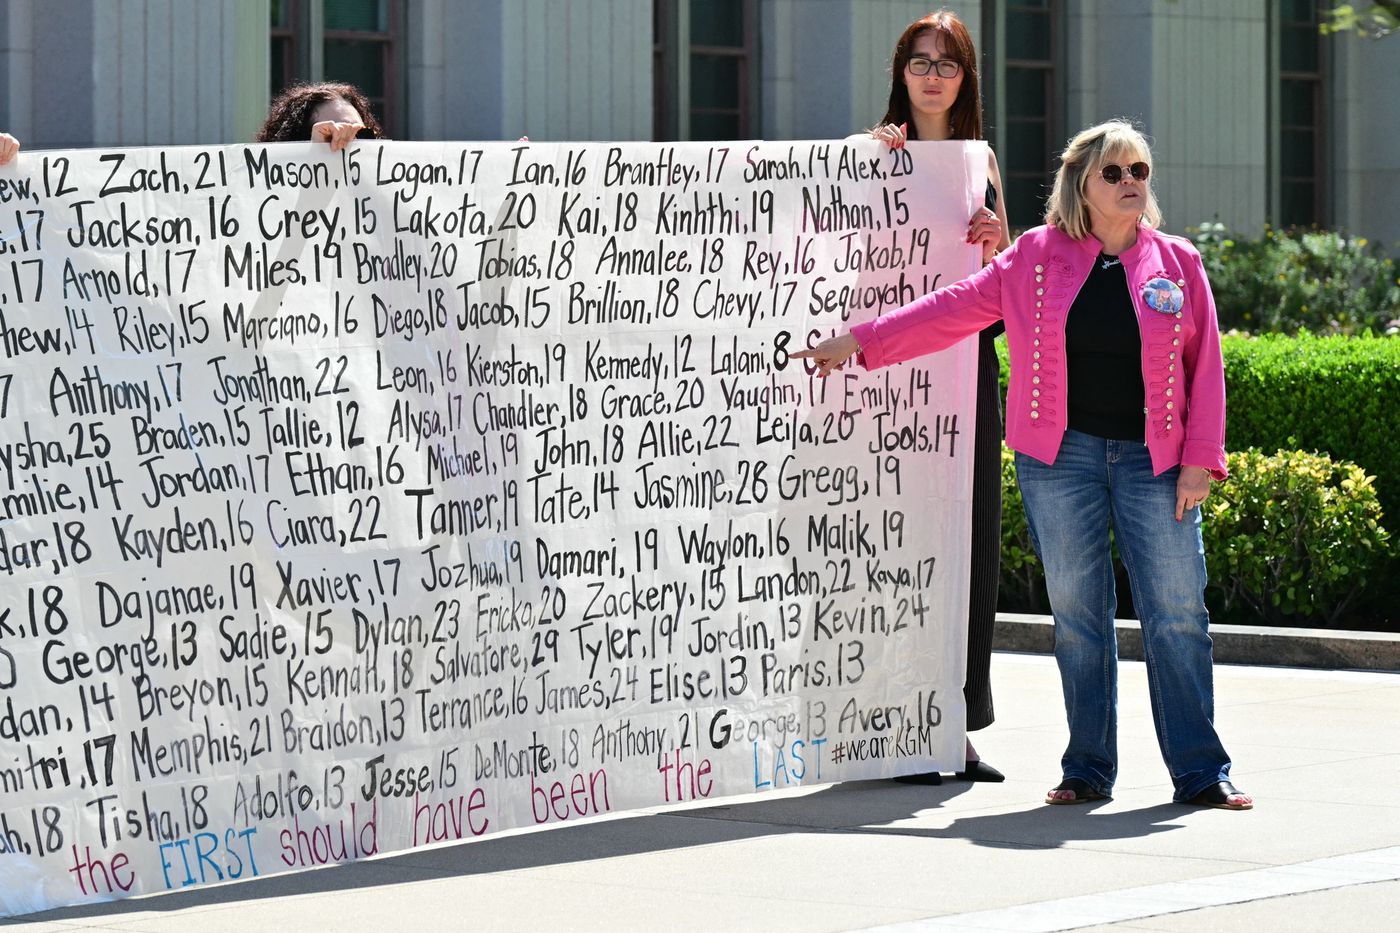 12 Zach, 21 Mason, 15 Logan, 17 Ian, 16 Brantley, 17 Sarah, 14 Alex, 20
17 Jackson, 16 Crey, 15 Lakota, 20 Kai, 18 Kinhthi, 19 Nathan, 15
17 Arnold, 17 Miles, 19 Bradley, 20 Tobias, 18 Annalee, 18 Rey, 16 Jakob, 19
hew, 14 Riley, 15 Marciano, 16 Diego, 18 Jacob, 15 Brillion, 18 Chevy, 17 Sequoyah, 16
7 Anthony, 17 Jonathan, 22 Leon, 16 Kierston, 19 Kennedy, 12 Lalani, 8
ysha, 25 Braden, 15 Tallie, 12 Alysa, 17 Chandler, 18 Grace, 20 Vaughn, 17 Emily, 14
milie, 14 Jordan, 17 Ethan, 16 Michael, 19 John, 18 Allie, 22 Leila, 20 Jools, 14
dar, 18 Kayden, 16 Ciara, 22 Tanner, 19 Tate, 14 Jasmine, 28 Gregg, 19
k, 18 Dajanae, 19 Xavier, 17 Jozhua, 19 Damari, 19 Waylon, 16 Malik, 19
George, 13 Sadie, 15 Dylan, 23 Ericka, 20 Zackery, 15 Landon, 22 Kaya, 17
dan, 14 Breyon, 15 Kennah, 18 Salvatore, 29 Tyler, 19 Jordin, 13 Kevin, 24
mitri, 17 Memphis, 21 Braidon, 13 Terrance, 16 James, 24 Elise, 13 Paris, 13
ah, 18 Tisha, 18 Adolfo, 13 Jesse, 15 DeMonte, 18 Anthony, 21 George, 13 Avery, 16
the FIRST should have been the LAST #weareKGM